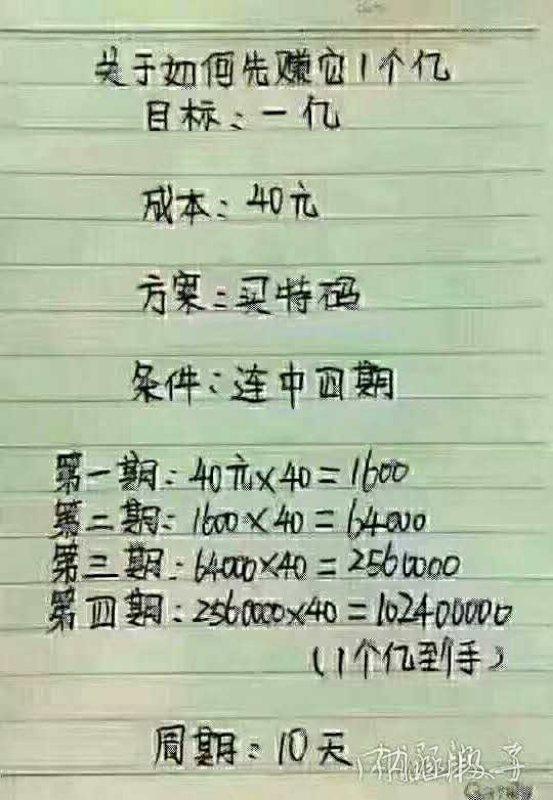 关于如何先赚它1个亿
目标：一亿
成本：40元
方案：买特码
条件：连中四期
第一期：40元×40=1600
第二期：1600×40=64000
第三期：64000×40=2560000
第四期：2560000×40=102400000
（1个亿到手）
周期：10天